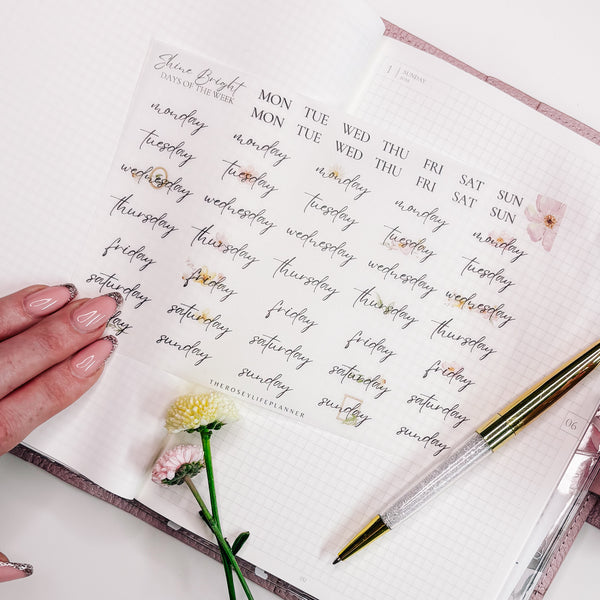 Shine Bright
DAYS OF THE WEEK
MON TUE WED THU FRI SAT SUN
MON TUE WED THU FRI SAT SUN
monday monday monday monday monday
tuesday tuesday tuesday tuesday tuesday
wednesday wednesday wednesday wednesday wednesday
thursday thursday thursday thursday thursday
friday friday friday friday friday
saturday saturday saturday saturday saturday
sunday sunday sunday sunday
THEROSEYLIFEPLANNER
1 SUNDAY
06